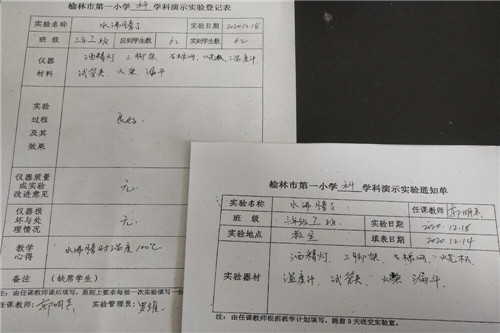 榆林市第一小学 科 学科演示实验登记表
实验名称 水沸腾了 实验日期 2020.12.18
班 级 三年级 班 应到学生数 62 实到学生数 62
仪器 酒精灯 三脚架 石棉网 烧杯 温度计
材料 试管夹 火柴 漏斗
实验
过程 良好.
及其
效果
仪器质量
或实验 无.
改进意见
仪器损
坏与处 无.
理情况
教学 水沸腾时温度100℃
心得
备注 (缺席学生)
注:由任课教师课后填写,原则上要求每做一次实验填写一
任课教师: 实验管理员:
榆林市第一小学 科 学科演示实验通知单
实验名称 水沸腾了 任课教师
班 级 三年级 班 实验日期 2020.12.18
实验地点 教室 填表日期 2020.12.14
实验器材 酒精灯. 三脚架. 石棉网. 烧杯
温度计. 试管夹 火柴 漏斗
注:由任课教师根据教学计划填写,提前3天送交实验室。